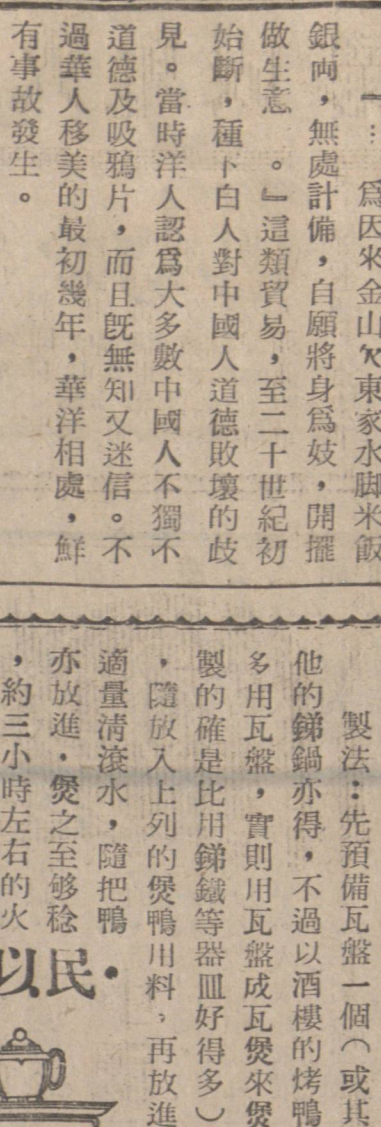 一：爲因來金山欠東家水脚米飯
銀両，無處計備，自願將身爲妓，開擺
做生意　。』這類貿易，至二十世紀初
始斷，種下白人對中國人道德敗壞的歧
見。當時洋人認爲大多數中國人不獨不
道德及吸鴉片，而且既無知又迷信。不
過華人移美的最初幾年，華洋相處，鮮
有事故發生。
製法：先預備瓦盤一個（或其
他的銻鍋亦得，不過以酒樓的烤鴨
多用瓦盤，實則用瓦盤或瓦煲來煲
製的確是比用銻鐵等器皿好得多）
，隨放入上列的煲鴨用料，再放進
適量清滾水，隨把鴨
亦放進，煲之至够稔
，約三小時左右的火
以民•